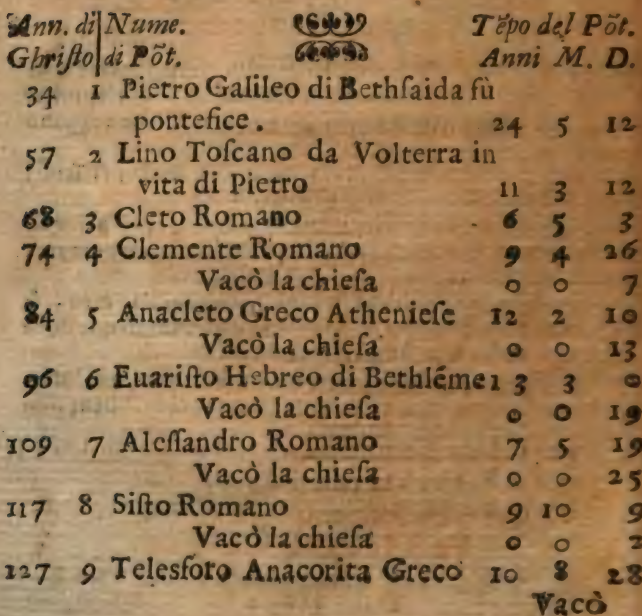 Ann. di Nume. Tẽpo del Põt.
Ghriſto di Põt. Anni M. D.
34 1 Pietro Galileo di Bethſaida fù
pontefice. 24 5 12
57 2 Lino Toſcano da Volterra in
vita di Pietro 11 3 12
68 3 Cleto Romano 6 5 3
74 4 Clemente Romano 9 4 26
Vacò la chieſa 0 0 7
84 5 Anacleto Greco Athenieſe 12 2 10
Vacò la chieſa 0 0 13
96 6 Euariſto Hebreo di Bethlẽme 13 3 0
Vacò la chieſa 0 0 19
109 7 Aleſſandro Romano 7 5 19
Vacò la chieſa 0 0 25
117 8 Siſto Romano 9 10 9
Vacò la chieſa 0 0 2
127 9 Telesforo Anacorita Greco 10 8 28
Vacò